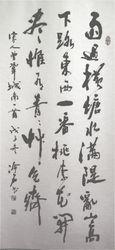 雨過橫塘水滿隄亂山高
下路東西一番桃李花開
盡惟有青青艸色齊
宋人曾鞏城南一首戊子冬